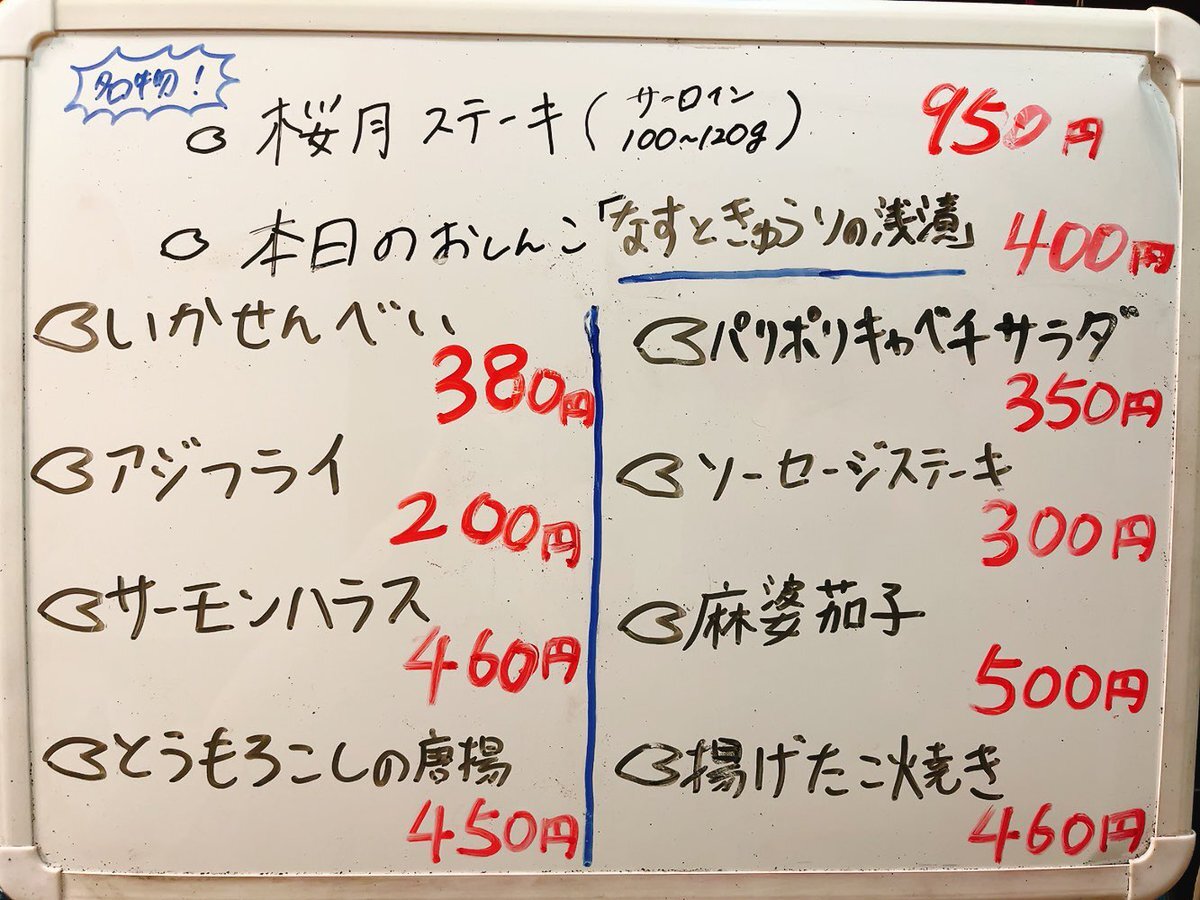 名物!
桜月ステーキ(サーロイン 100~120g) 950円
本日のおしんこ「なすときゅうりの浅漬」 400円
いかせんべい
380円
アジフライ
200円
サーモンハラス
460円
とうもろこしの唐揚
450円
パリポリキャベチサラダ
350円
ソーセージステーキ
300円
麻婆茄子
500円
揚げたこ焼き
460円